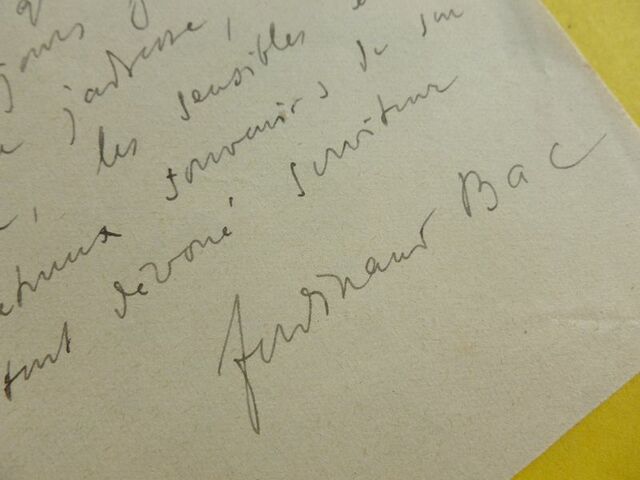 jours
j'adresse,
les sensibles e
souvenirs de son
tout dévoué serviteur
Ferdinand Bac